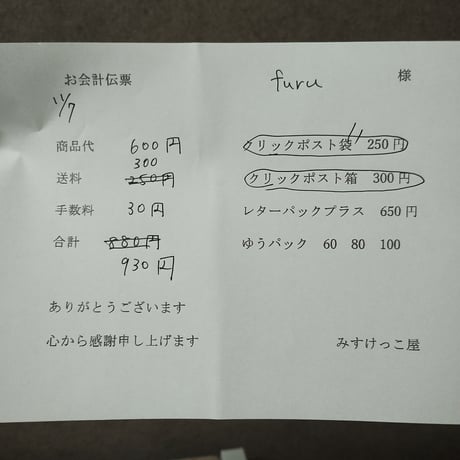 お会計伝票
11/7
商品代 600円
300
送料 250円
手数料 30円
合計 880円
930円
ありがとうございます
心から感謝申し上げます
furu 様
クリックポスト袋 250円
クリックポスト箱 300円
レターパックプラス 650円
ゆうパック 60 80 100
みすけっこ屋